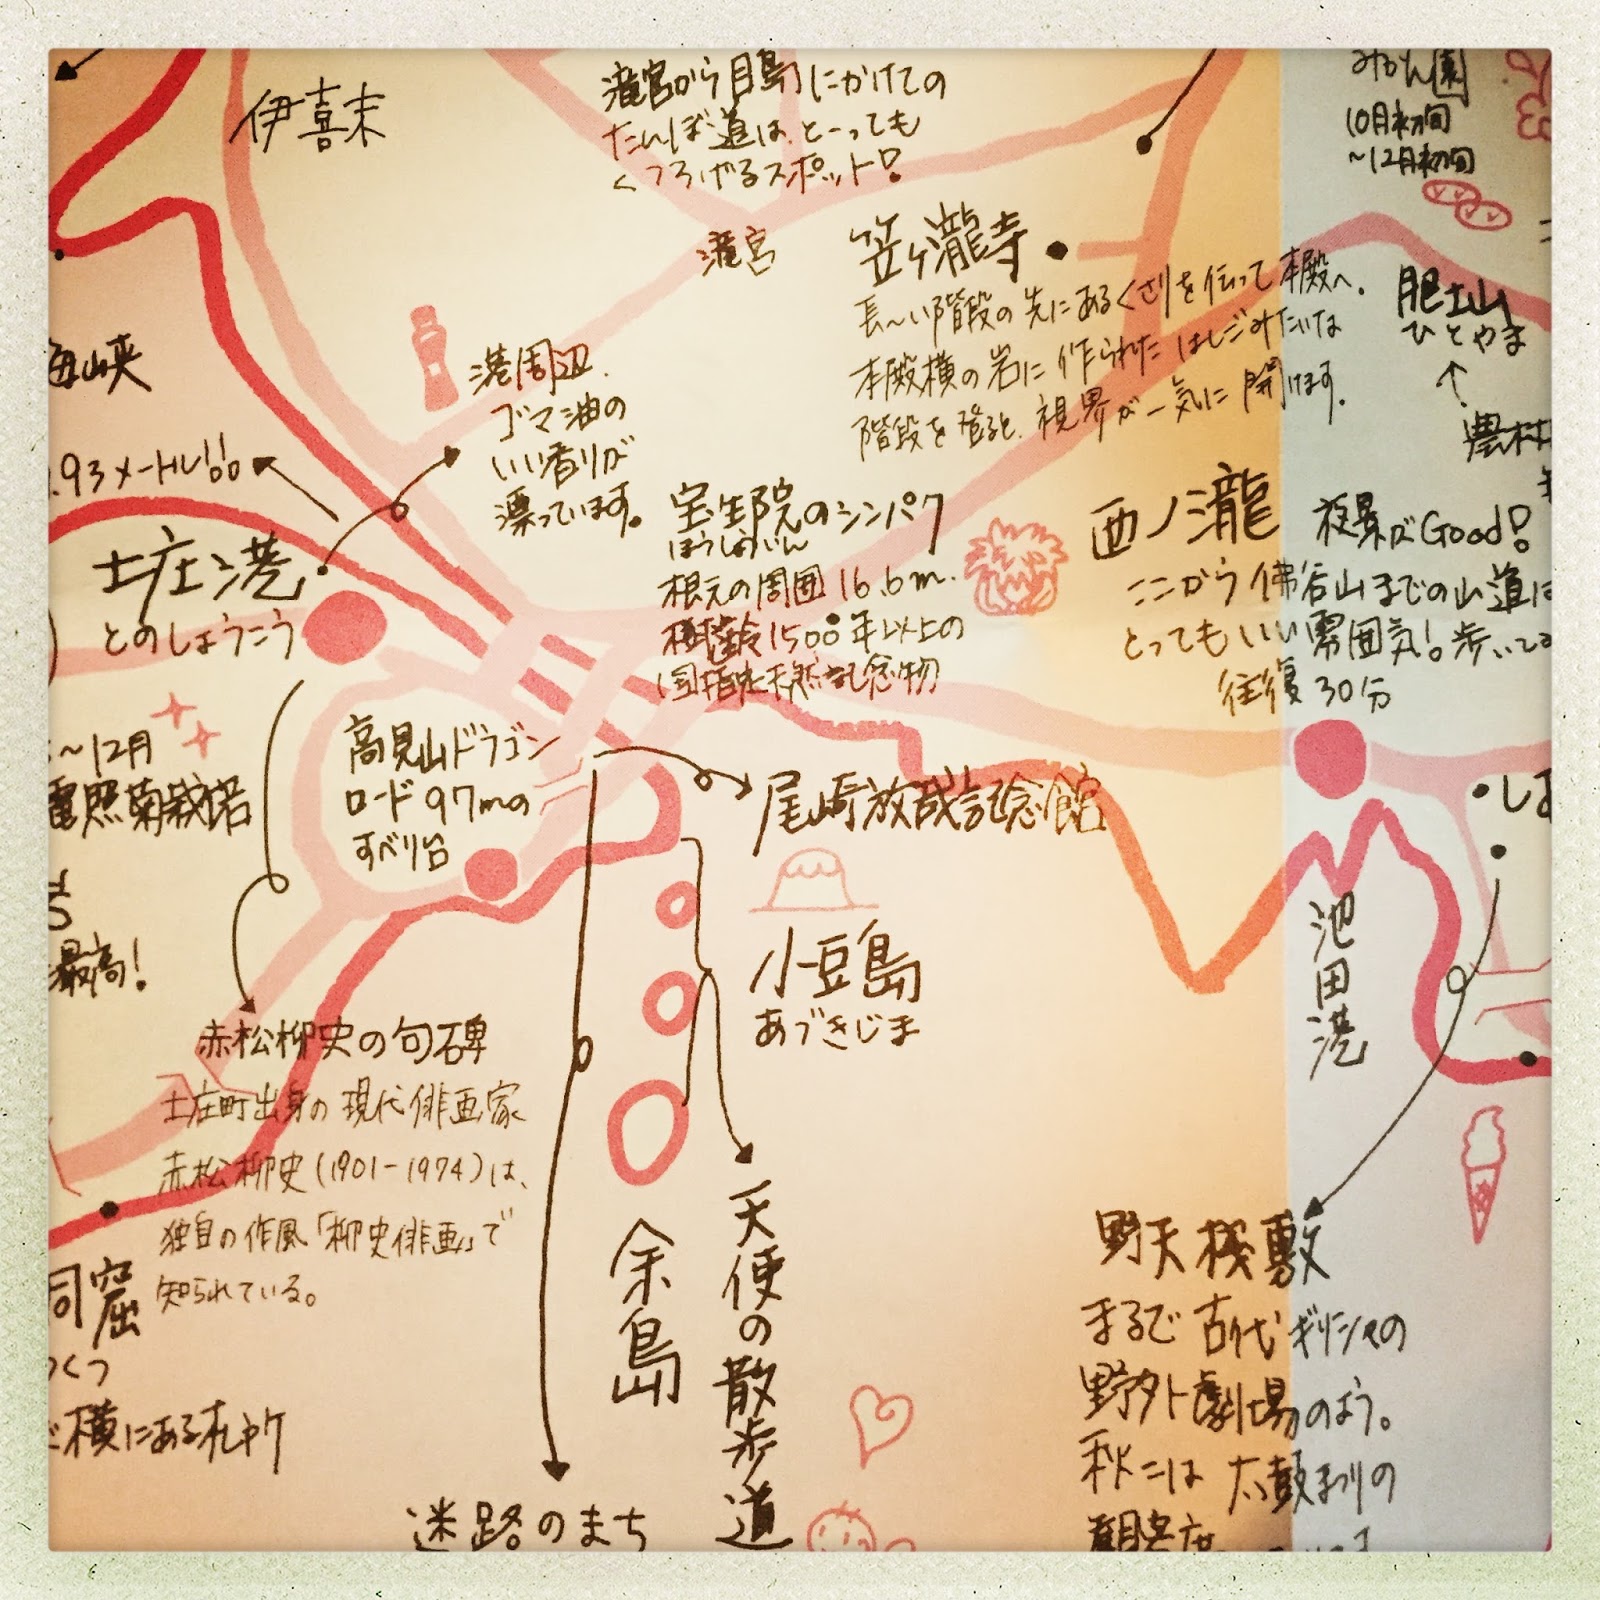 伊喜末
滝宮から目島にかけての
たんぼ道は、とーっても
くつろげるスポット!
滝宮
みかん園
10月初旬
〜12月初旬
笠ヶ瀧寺
長〜い階段の先にあるくさりを伝って本殿へ。
本殿横の岩に作られたはしごみたいな
階段を登ると、視界が一気に開けます。
肥土山
ひとやま
農村
海峡
.93メートル!!
港周辺、
ゴマ油の
いい香りが
漂っています。
土庄港
とのしょうこう
宝生院のシンパク
ほうしょういん
根元の周囲16.6m.
樹齢1500年以上の
国指定天然記念物
西ノ瀧
夜景がGood!
ここから佛谷山までの山道は
とってもいい雰囲気!歩いて
往復30分
〜12月
電照菊栽培
最高!
高見山ドラゴン
ロード97mの
すべり台
尾崎放哉記念館
小豆島
あづきじま
池田港
赤松柳史の句碑
土庄町出身の現代俳画家
赤松柳史(1901-1974)は、
独自の作風「柳史俳画」で
知られている。
洞窟
くつ
横にある札所
余島
天使の散歩道
迷路のまち
野天桟敷
まるで古代ギリシャの
野外劇場のよう。
秋には太鼓まつりの
観客席